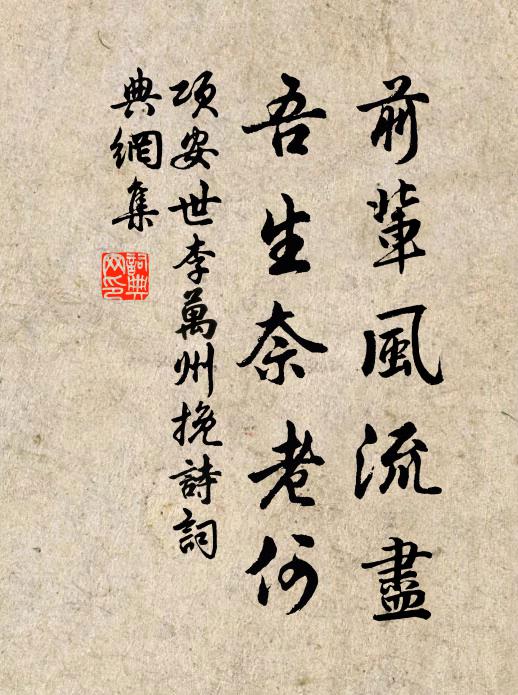 前輩風流盡
吾生奈老何
項安世李萬州挽詩詞
典網集
詞典
网印